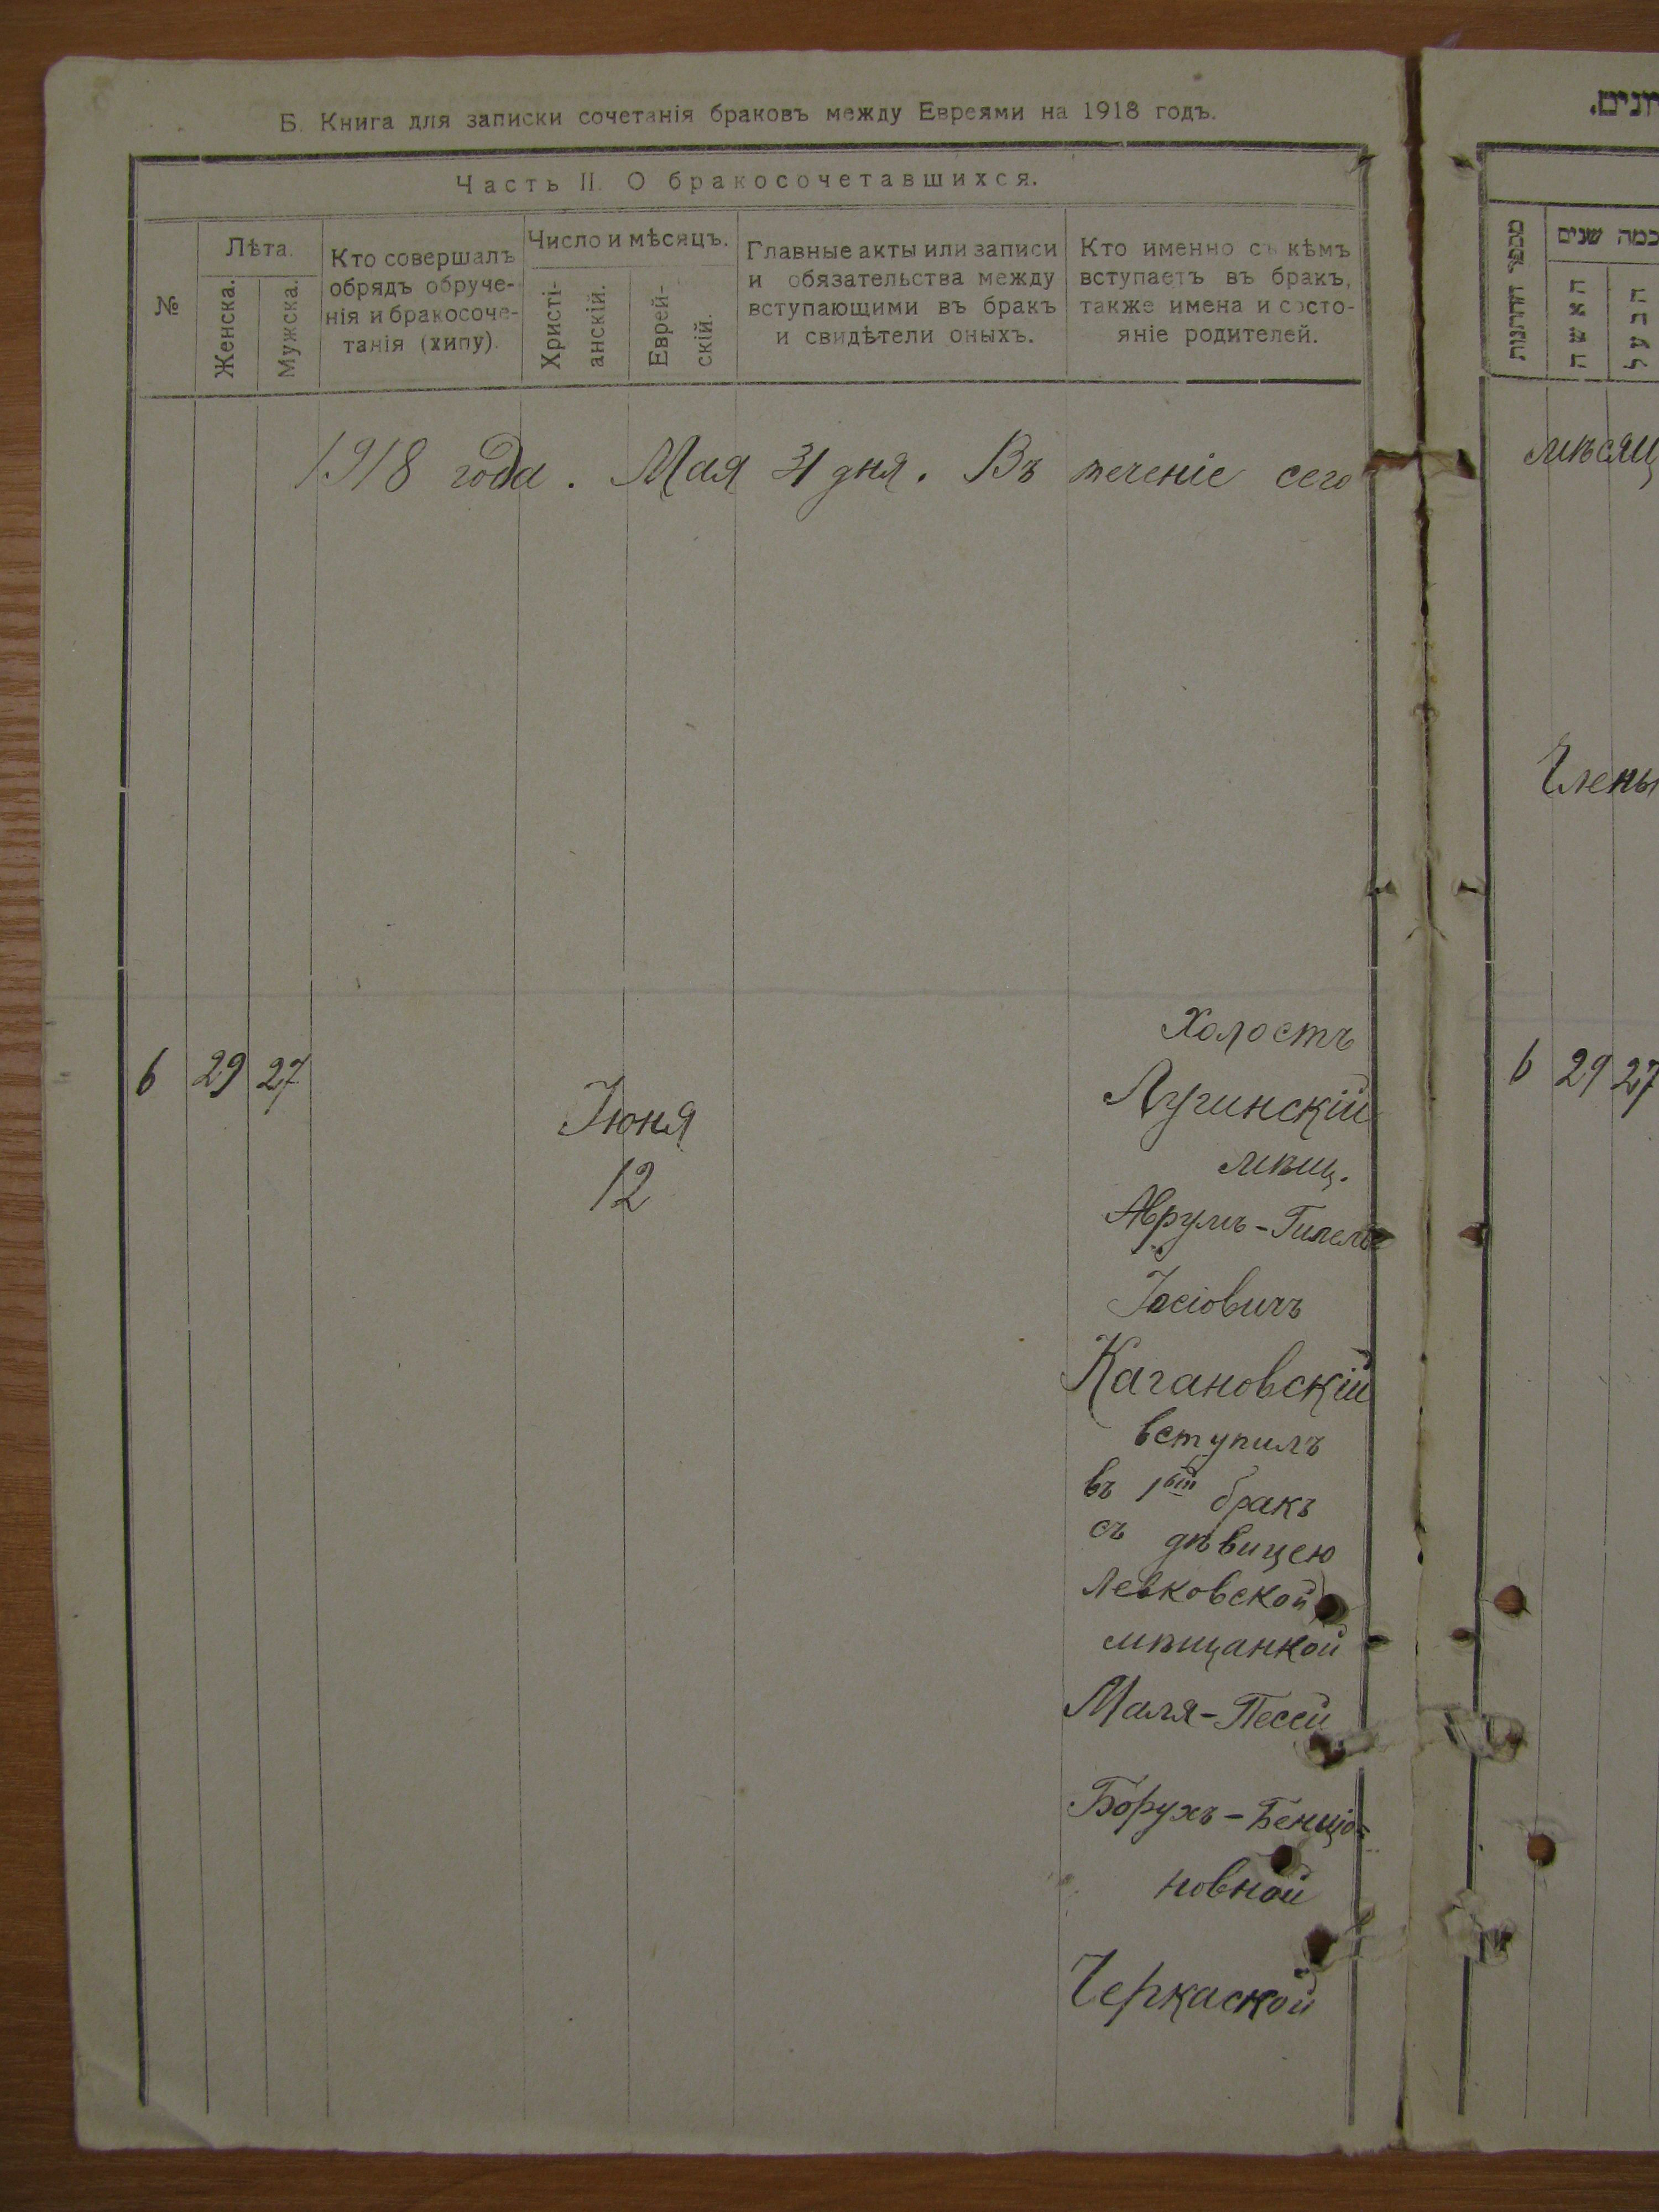 Б. Книга для записки сочетанія браковъ между Евреями на 1918 годъ.
Часть II. О бракосочетавшихся.
№
Лѣта.
Женска.
Мужска.
Кто совершалъ
обрядъ обруче-
нія и бракосоче-
танія (хипу).
Число и мѣсяцъ.
Христі-
анскій.
Еврей-
скій.
Главные акты или записи
и обязательства между
вступающими въ бракъ
и свидѣтели оныхъ.
Кто именно съ кѣмъ
вступаетъ въ бракъ,
также имена и состо-
яніе родителей.
1918 года. Мая 31 дня. Въ теченіе сего
6 29 27
Іюня
12
Холостъ
Лугинскій
мѣщ.
Аврумъ-Гилель
Іосіовичъ
Кагановскій
вступилъ
въ 1ый бракъ
съ дѣвицею
Левковской
мѣщанкой
Маля-Песси
Борухъ-Бенціо=
новной
Черкаской
כמה שנים
האשה
הבעל
мѣсяц
Члены
6 29 27